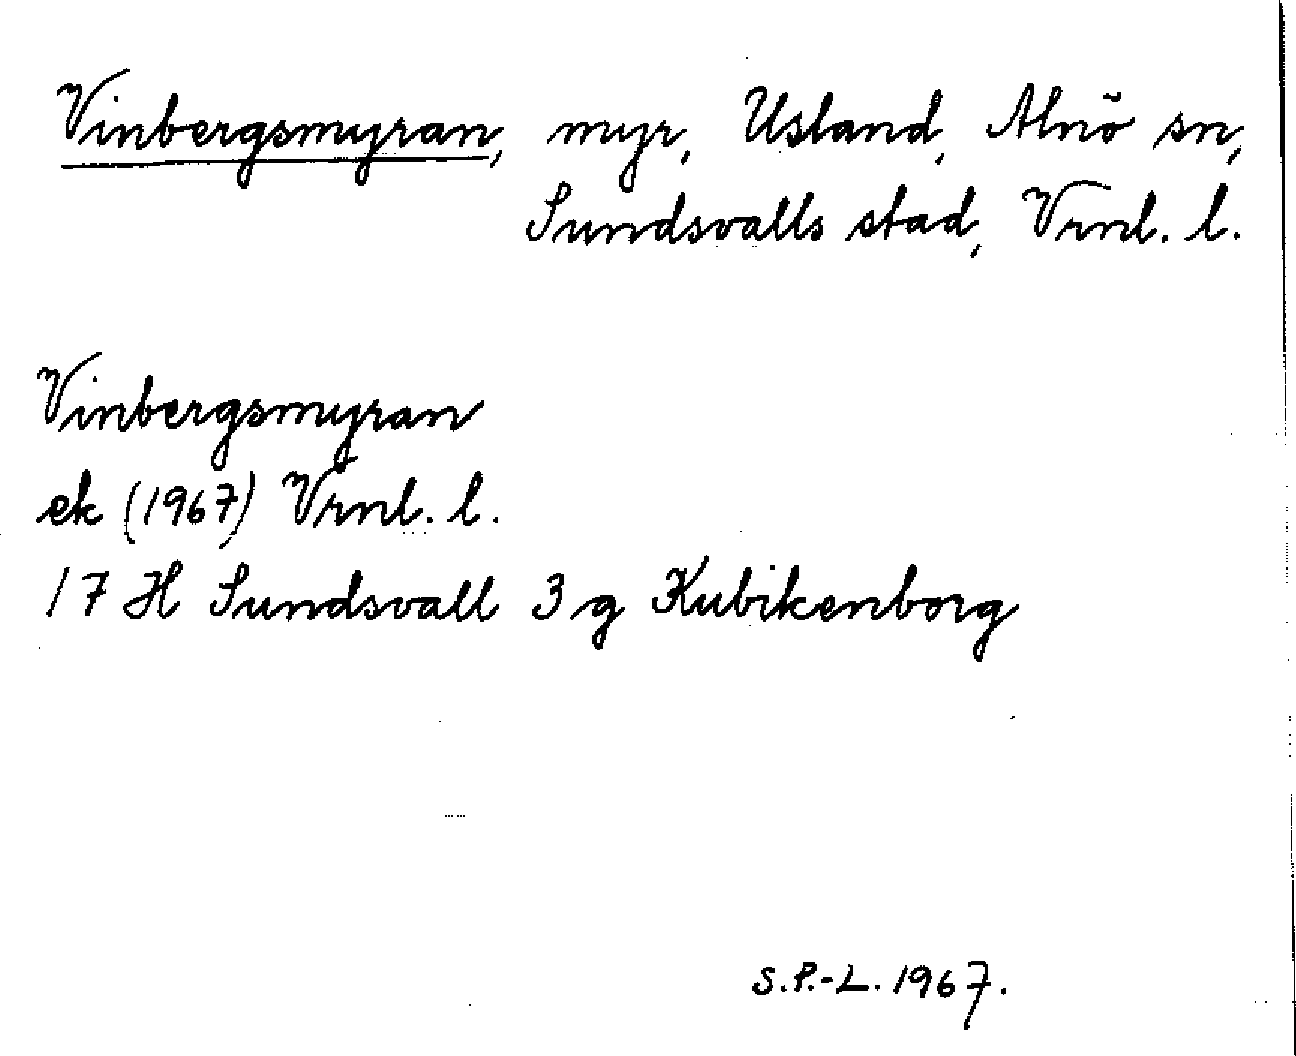 Vinbergsmyran, myr, Usland, Alnö sn,
Sundsvalls stad, Vrnl. l.
Vinbergsmyran
ek (1967) Vrnl. l.
17 H Sundsvall 3 g Kubikenborg
S.P.-L. 1967.